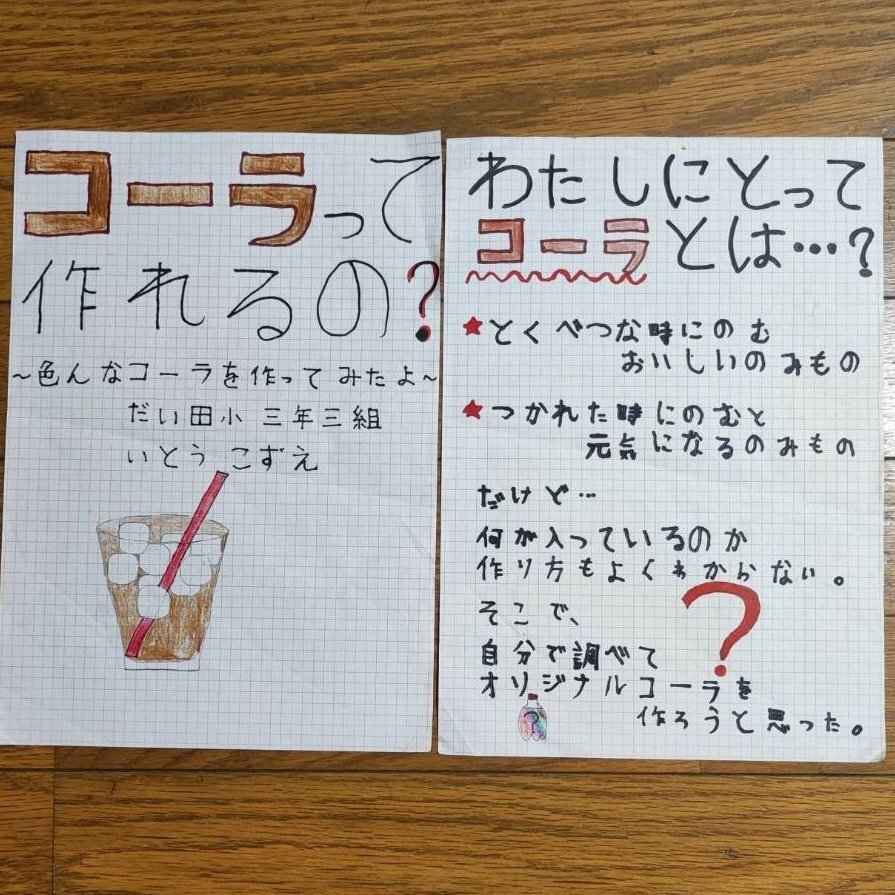 コーラって
作れるの?
~色んなコーラを作ってみたよ~
だい田小 三年三組
いとう こずえ
わたしにとって
コーラとは…?
★とくべつな時にのむ
おいしいのみもの
★つかれた時にのむと
元気になるのみもの
だけど…
何が入っているのか
作り方もよくわからない。
?
そこで、
自分で調べて
オリジナルコーラを
作ろうと思った。
?